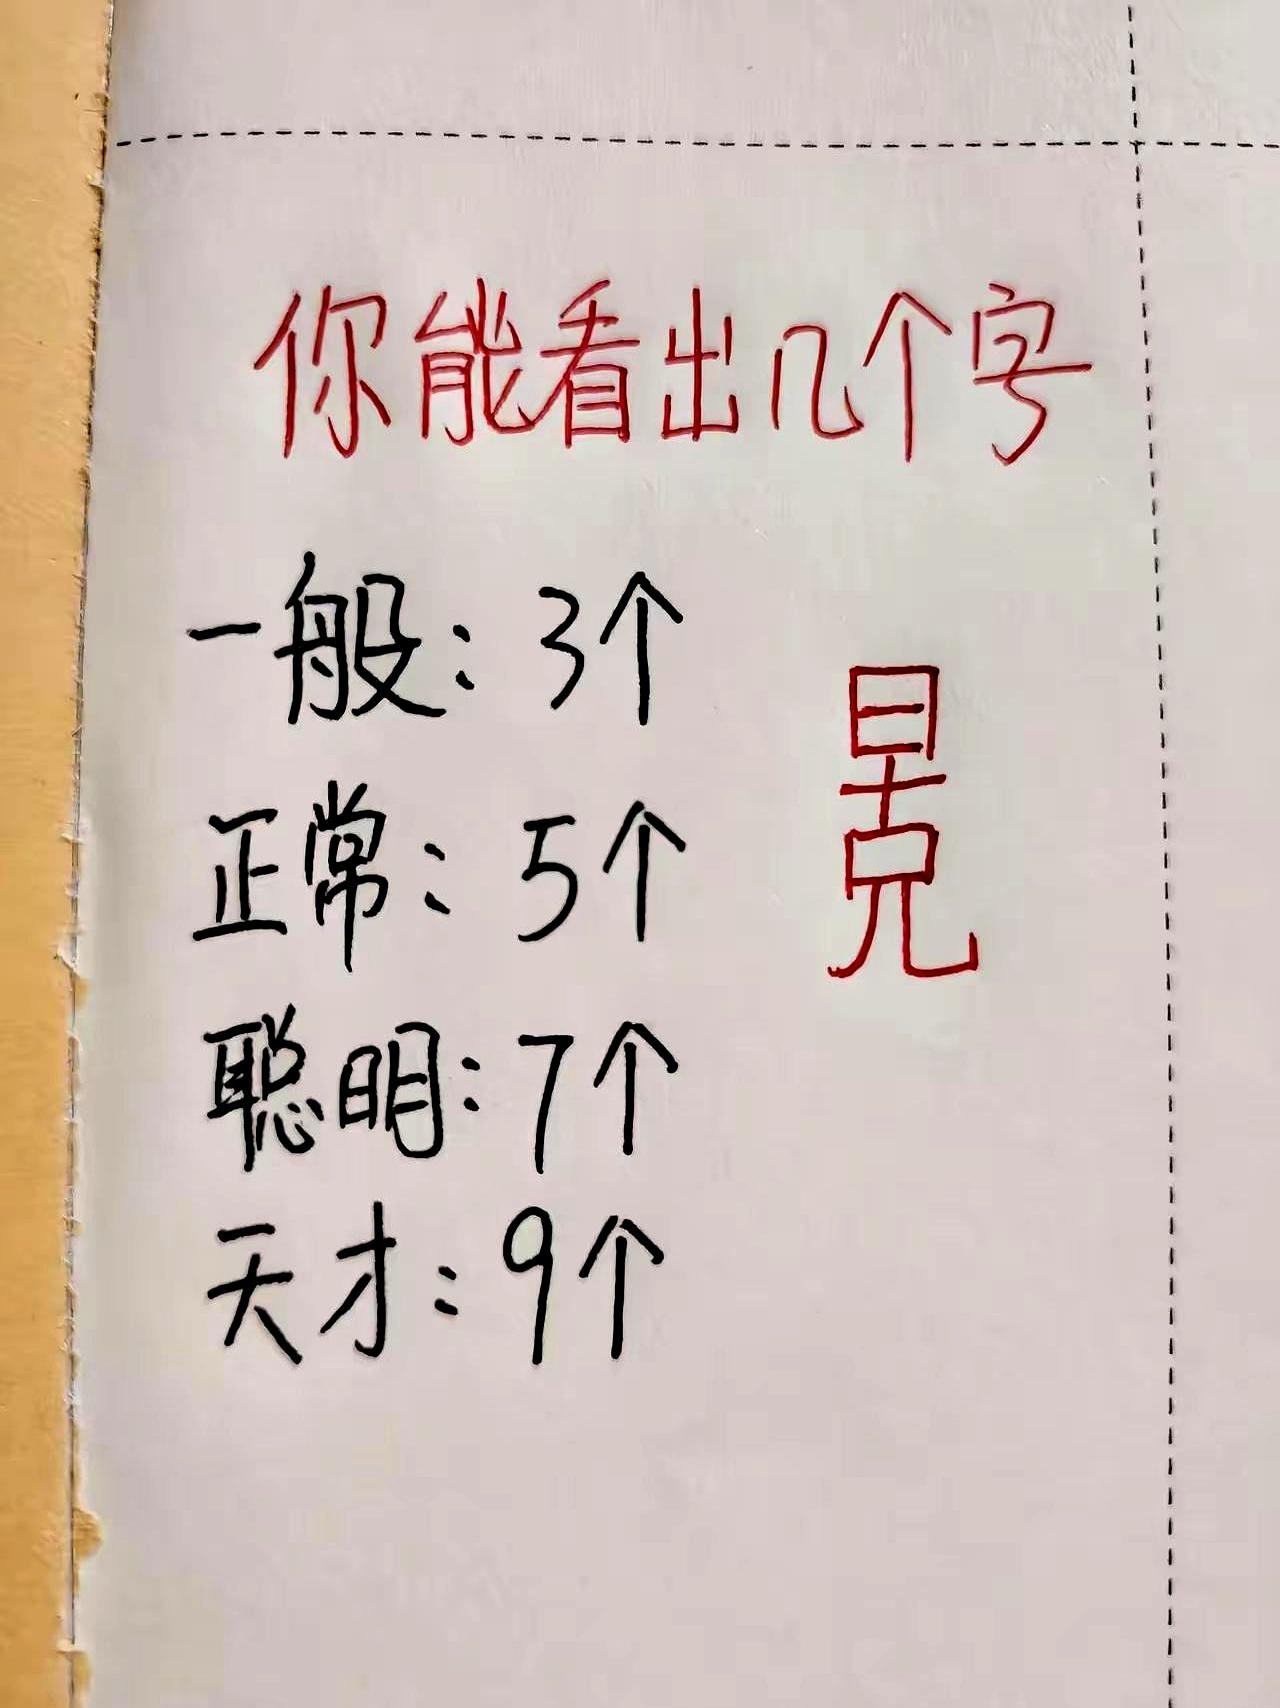 你能看出几个字
一般：3个
正常：5个
聪明：7个
天才：9个